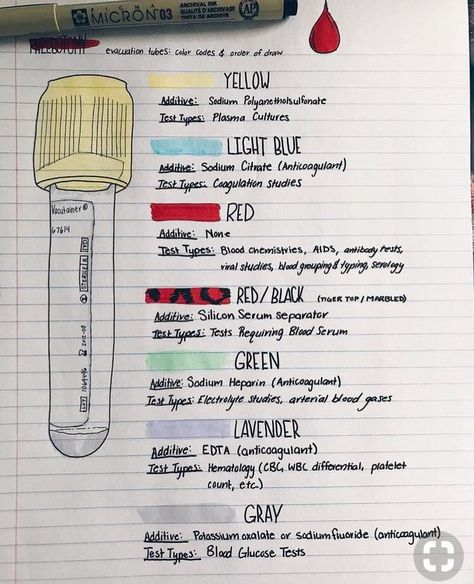 SIGMA
MICRON 03
ARCHIVAL INK
QUALITÉ D'ARCHIVAGE
TINTA DE ARCHIVO
AP
PHLEBOTOMY evacuation tubes: color codes & order of draw
YELLOW
Additive: Sodium Polyanetholsulfonate
Test Types: Plasma Cultures
LIGHT BLUE
Additive: Sodium Citrate (Anticoagulant)
Test Types: Coagulation studies
RED
Additive: None
Test Types: Blood chemistries, AIDS, antibody tests,
viral studies, blood grouping & typing, serology
RED/BLACK (TIGER TOP / MARBLED)
Additive: Silicon Serum separator
Test Types: Tests Requiring Blood Serum
GREEN
Additive: Sodium Heparin (Anticoagulant)
Test Types: Electrolyte studies, arterial blood gases
LAVENDER
Additive: EDTA (anticoagulant)
Test Types: Hematology (CBC, WBC differential, platelet
count, etc.)
GRAY
Additive: Potassium oxalate or sodium fluoride (anticoagulant)
Test Types: Blood Glucose Tests
Vacutainer®
67614
STERILE
LOT